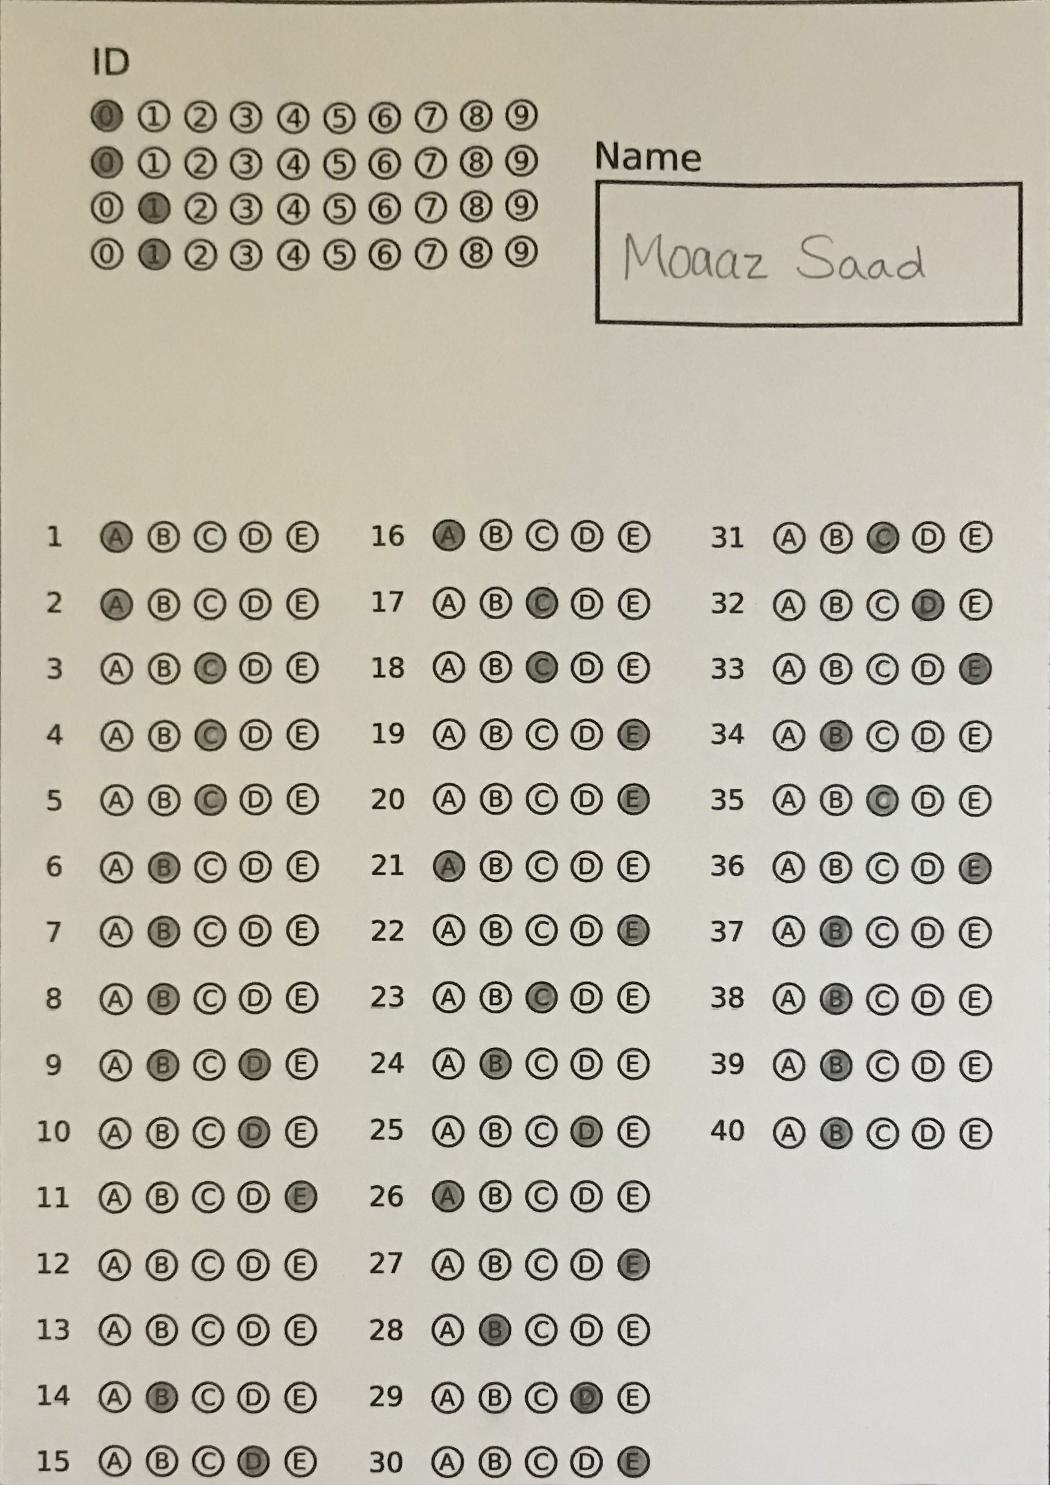 ID
0 1 2 3 4 5 6 7 8 9
0 1 2 3 4 5 6 7 8 9
0 1 2 3 4 5 6 7 8 9
0 1 2 3 4 5 6 7 8 9
Name
Moaaz Saad
1 A B C D E
2 A B C D E
3 A B C D E
4 A B C D E
5 A B C D E
6 A B C D E
7 A B C D E
8 A B C D E
9 A B C D E
10 A B C D E
11 A B C D E
12 A B C D E
13 A B C D E
14 A B C D E
15 A B C D E
16 A B C D E
17 A B C D E
18 A B C D E
19 A B C D E
20 A B C D E
21 A B C D E
22 A B C D E
23 A B C D E
24 A B C D E
25 A B C D E
26 A B C D E
27 A B C D E
28 A B C D E
29 A B C D E
30 A B C D E
31 A B C D E
32 A B C D E
33 A B C D E
34 A B C D E
35 A B C D E
36 A B C D E
37 A B C D E
38 A B C D E
39 A B C D E
40 A B C D E